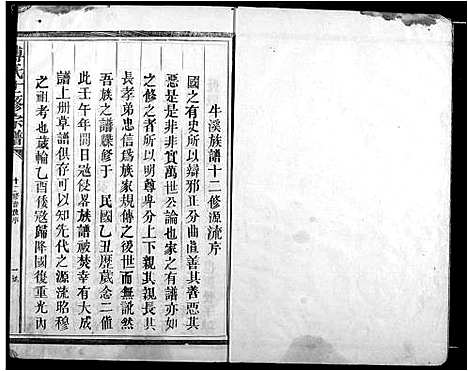 牛溪族譜十二修源流序
國之有史所以辯邪正分曲直善其善惡其
惡是是非非實萬世公論也家之有譜亦如
之修之者所以明尊卑分上下親其親長其
長孝弟忠信爲族家規傳之後世而無訛然
吾族之譜牒修于 民國乙丑歷歲念二值
此壬午年閏日寇侵畧族譜被焚幸有大成
譜上册草譜俱存可以知先代之源流昭穆
之祖考也歲輪乙酉倭寇歸降國復重光內
氏十二修宗譜